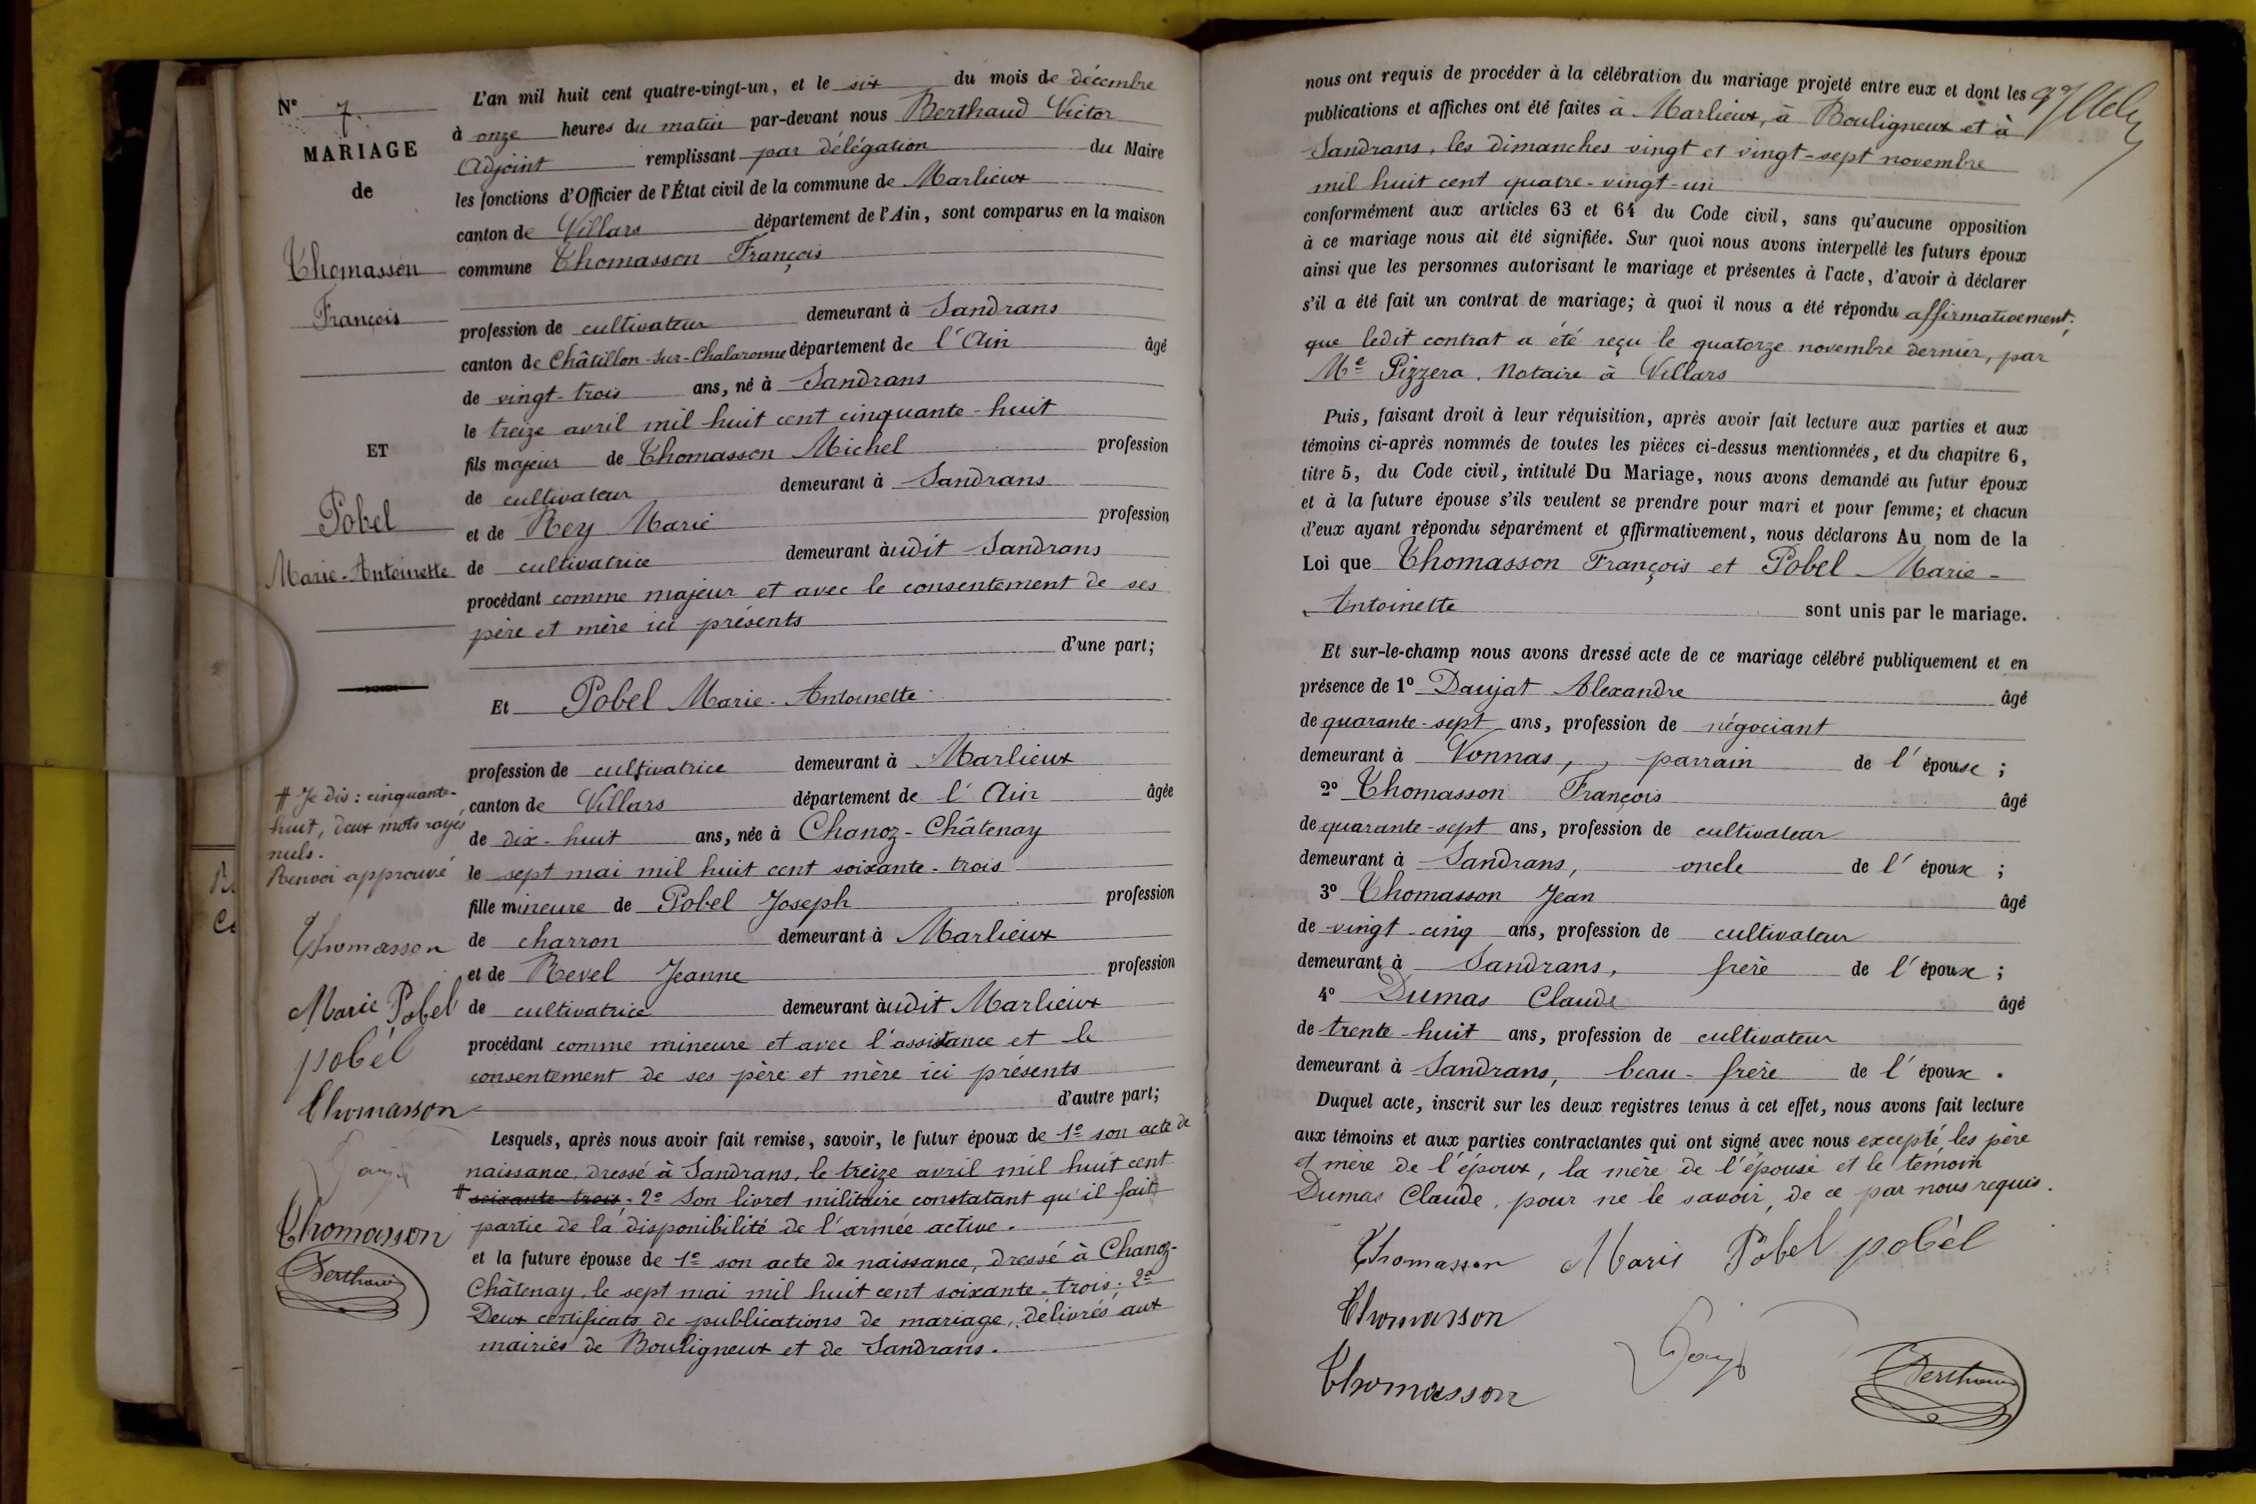 N° 7.
MARIAGE
de
Thomasson
François
ET
Pobel
Marie-Antoinette
‡ Je dis : cinquante-
huit, deux mots rayés
nuls.
Renvoi approuvé
Thomasson
Marie Pobel
pobél
Thomasson
Thomasson
Berthaud
L'an mil huit cent quatre-vingt-un, et le six du mois de décembre
à onze heures du matin par-devant nous Berthaud Victor
Adjoint remplissant par délégation du Maire
les fonctions d'Officier de l'État civil de la commune de Marlieux
canton de Villars département de l'Ain, sont comparus en la maison
commune Thomasson François
profession de cultivateur demeurant à Sandrans
canton de Châtillon-sur-Chalaronne département de l'Ain âgé
de vingt-trois ans, né à Sandrans
le treize avril mil huit cent cinquante-huit
fils majeur de Thomasson Michel profession
de cultivateur demeurant à Sandrans
et de Rey Marie profession
de cultivatrice demeurant àudit Sandrans
procédant comme majeur et avec le consentement de ses
père et mère ici présents
d'une part;
Et Pobel Marie-Antoinette
profession de cultivatrice demeurant à Marlieux
canton de Villars département de l'Ain âgée
de dix-huit ans, née à Chanoz-Châtenay
le sept mai mil huit cent soixante-trois
fille mineure de Pobel Joseph profession
de charron demeurant à Marlieux
et de Revel Jeanne profession
de cultivatrice demeurant àudit Marlieux
procédant comme mineure et avec l'assistance et le
consentement de ses père et mère ici présents
d'autre part;
Lesquels, après nous avoir fait remise, savoir, le futur époux de 1° son acte de
naissance, dressé à Sandrans, le treize avril mil huit cent
‡ soixante-trois, 2° Son livret militaire constatant qu'il fait
partie de la disponibilité de l'armée active.
et la future épouse de 1° son acte de naissance, dressé à Chanoz-
Châtenay, le sept mai mil huit cent soixante-trois; 2°
Deux certificats de publications de mariage, délivrés aux
mairies de Bouligneux et de Sandrans.
nous ont requis de procéder à la célébration du mariage projeté entre eux et dont les
publications et affiches ont été faites à Marlieux, à Bouligneux et à
Sandrans, les dimanches vingt et vingt-sept novembre
mil huit cent quatre-vingt-un
conformément aux articles 63 et 64 du Code civil, sans qu'aucune opposition
à ce mariage nous ait été signifiée. Sur quoi nous avons interpellé les futurs époux
ainsi que les personnes autorisant le mariage et présentes à l'acte, d'avoir à déclarer
s'il a été fait un contrat de mariage; à quoi il nous a été répondu affirmativement;
que ledit contrat a été reçu le quatorze novembre dernier, par
Me Pizzera, Notaire à Villars
Puis, faisant droit à leur réquisition, après avoir fait lecture aux parties et aux
témoins ci-après nommés de toutes les pièces ci-dessus mentionnées, et du chapitre 6,
titre 5, du Code civil, intitulé Du Mariage, nous avons demandé au futur époux
et à la future épouse s'ils veulent se prendre pour mari et pour femme; et chacun
d'eux ayant répondu séparément et affirmativement, nous déclarons Au nom de la
Loi que Thomasson François et Pobel Marie-
Antoinette sont unis par le mariage.
Et sur-le-champ nous avons dressé acte de ce mariage célébré publiquement et en
présence de 1° Daujat Alexandre âgé
de quarante-sept ans, profession de négociant
demeurant à Vonnas, parrain de l'épouse ;
2° Thomasson François âgé
de quarante-sept ans, profession de cultivateur
demeurant à Sandrans, oncle de l'époux ;
3° Thomasson Jean âgé
de vingt-cinq ans, profession de cultivateur
demeurant à Sandrans, frère de l'époux ;
4° Dumas Claude âgé
de trente-huit ans, profession de cultivateur
demeurant à Sandrans, beau-frère de l'époux .
Duquel acte, inscrit sur les deux registres tenus à cet effet, nous avons fait lecture
aux témoins et aux parties contractantes qui ont signé avec nous excepté les père
et mère de l'époux, la mère de l'épouse et le témoin
Dumas Claude, pour ne le savoir, de ce par nous requis.
Thomasson Marie Pobel pobél
Thomasson
Thomasson Berthaud